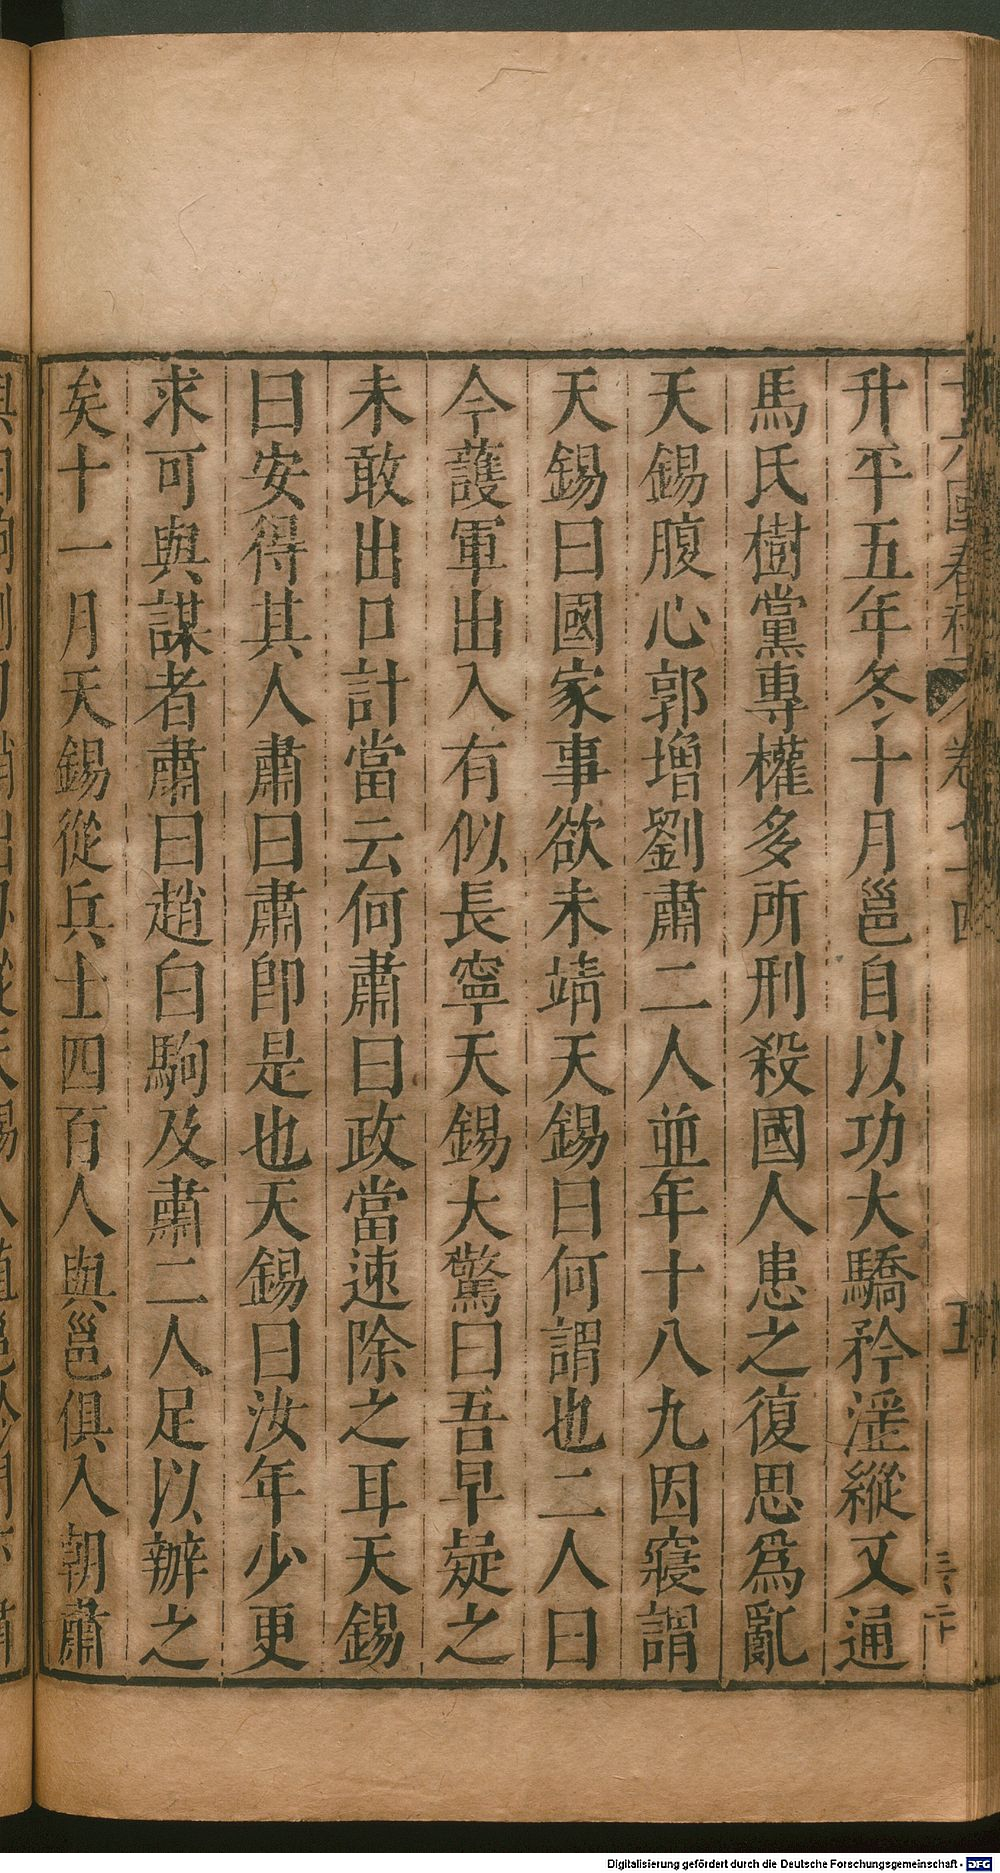 升平五年冬十月邕自以功大驕矜淫縱又通
馬氏樹黨專權多所刑殺國人患之復思爲亂
天錫腹心郭增劉肅二人並年十八九因寢謂
天錫曰國家事欲未靖天錫曰何謂也二人曰
今護軍出入有似長寧天錫大驚曰吾早疑之
未敢出口計當云何肅曰政當速除之耳天錫
曰安得其人肅曰肅即是也天錫曰汝年少更
求可與謀者肅曰趙白駒及肅二人足以辦之
矣十一月天錫從兵士四百人與邕俱入朝肅
Digitalisierung gefördert durch die Deutsche Forschungsgemeinschaft - DFG